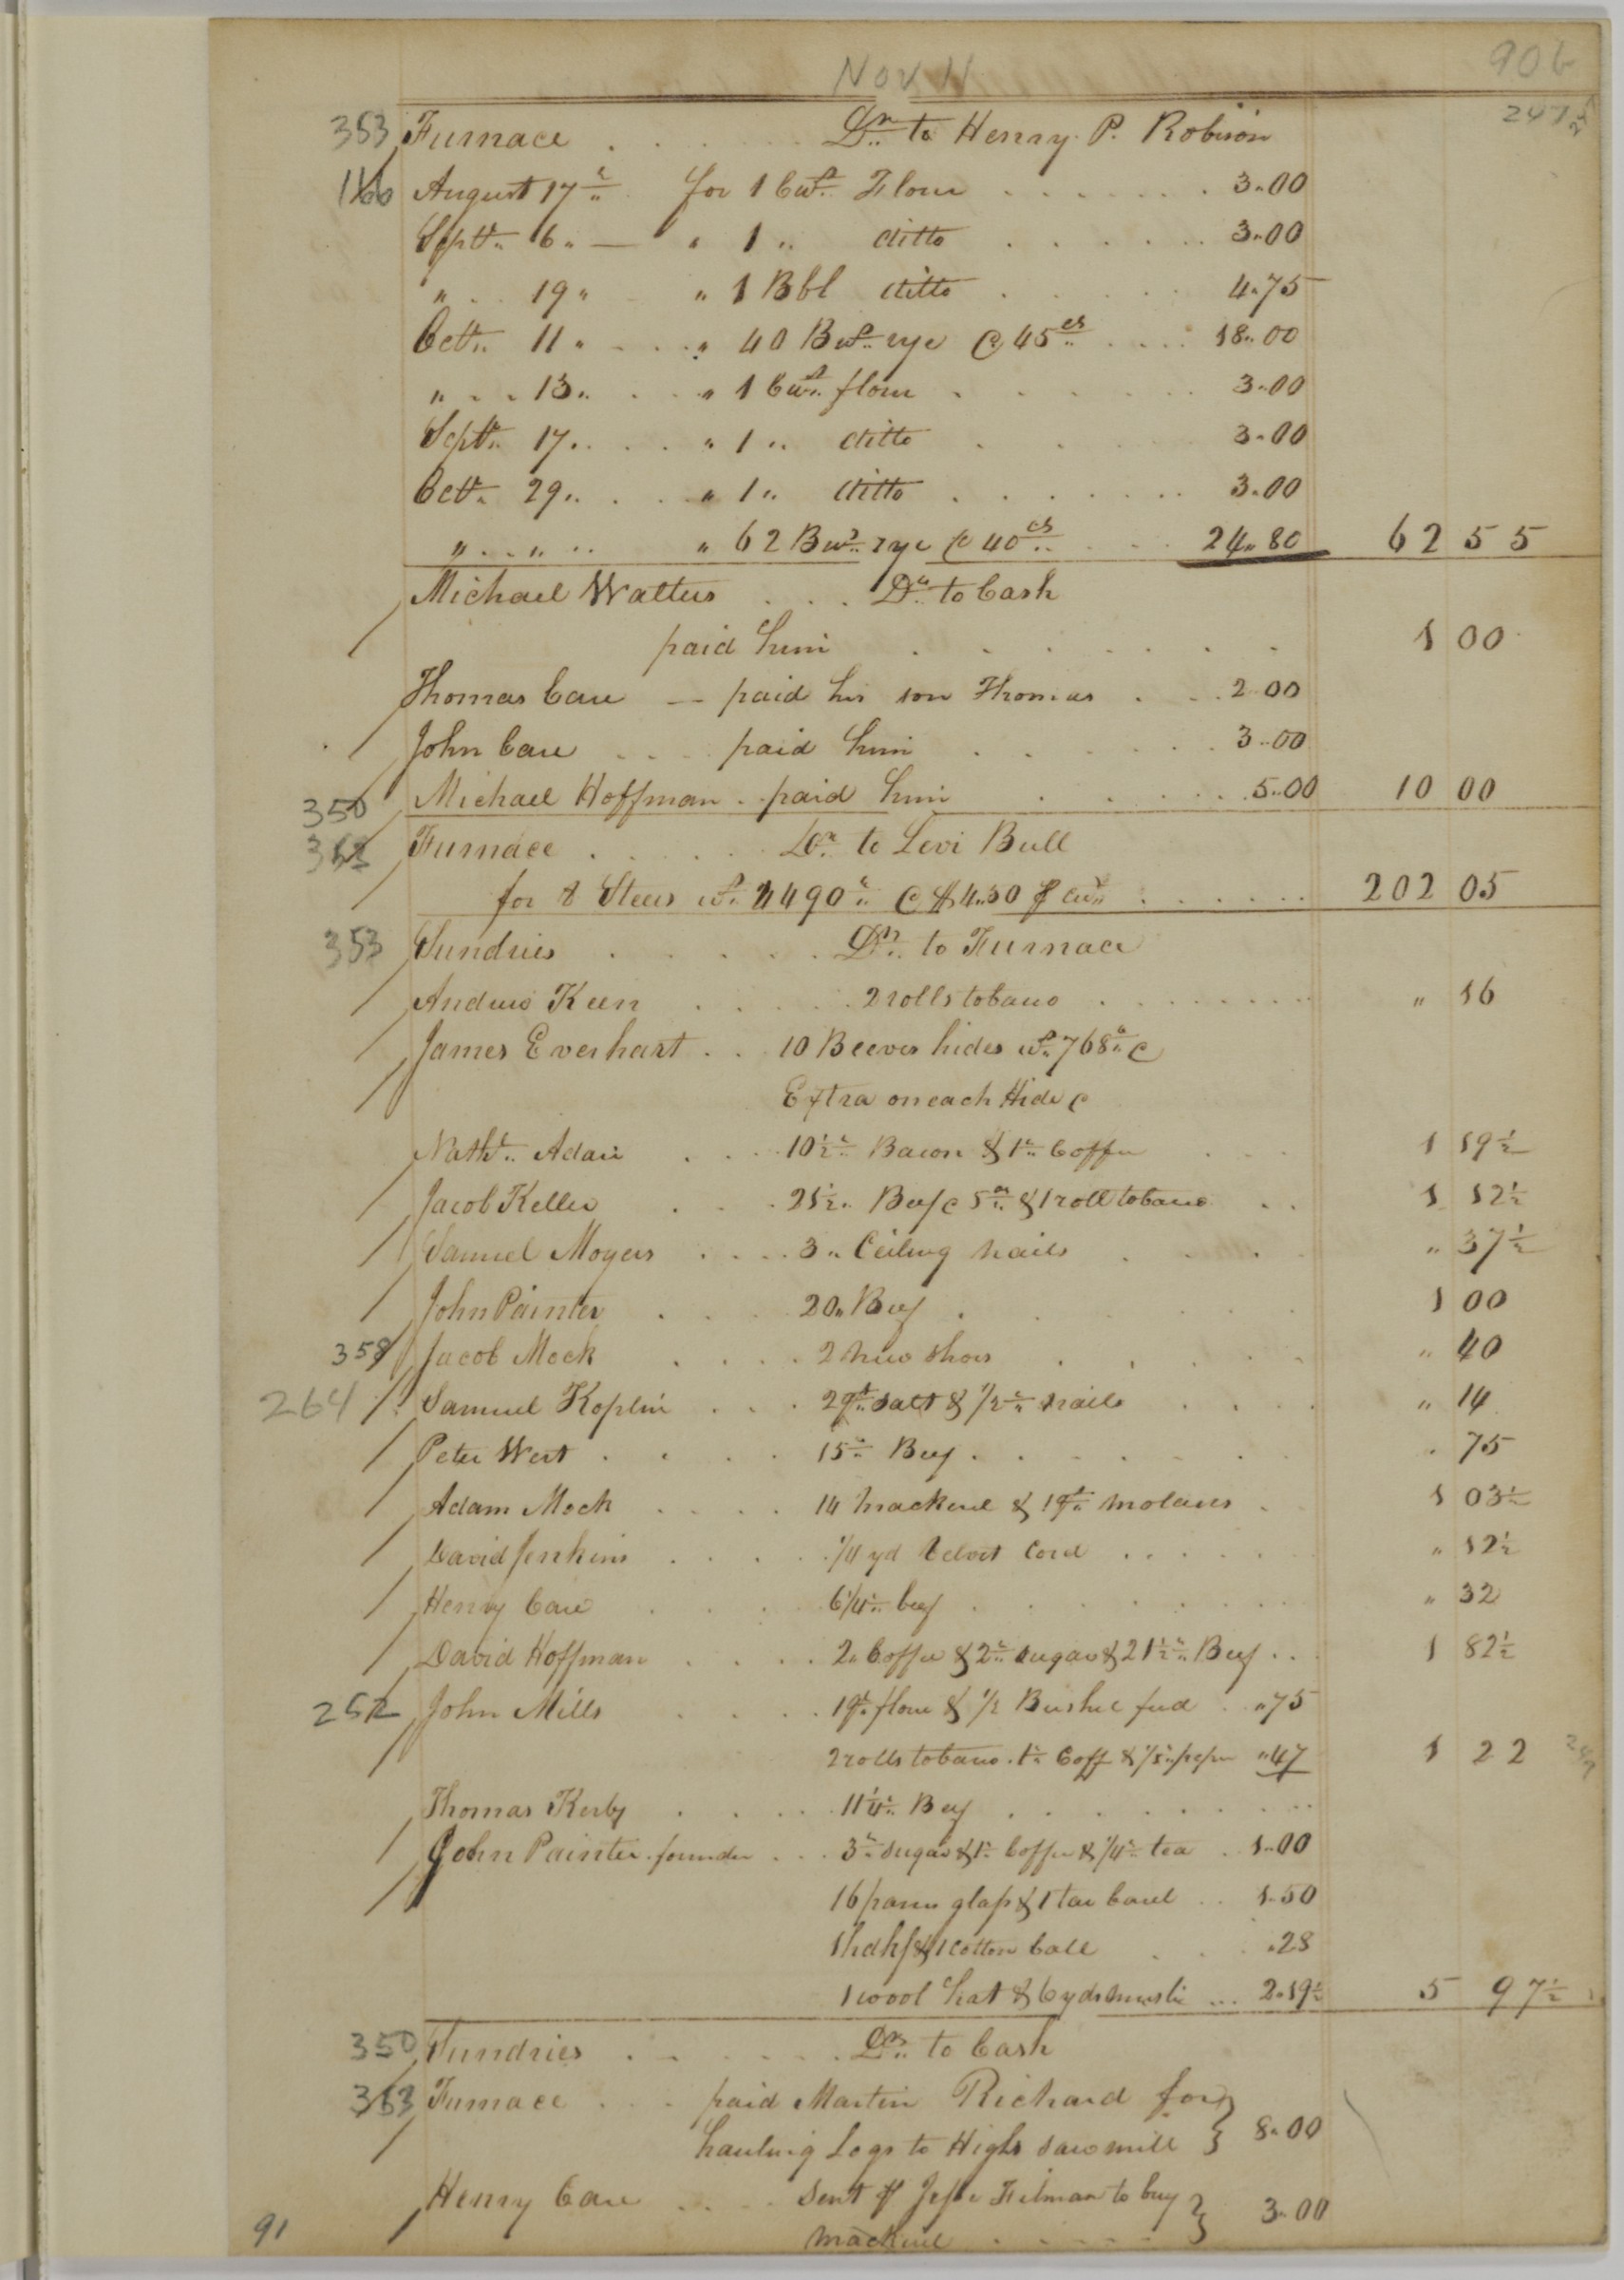 Nov 11
906
247
353 Furnace . . . . . Dr. to Henry P. Robison
166 August 17th for 1 Cwt. Flour . . . . . . . 3.00
Septr. 6 " — " 1 " ditto . . . . . . 3.00
" . . 19 " " 1 Bbl ditto . . . . . 4.75
Octr. 11 " - . . " 40 Bus. rye @ 45 cts . . . . 18.00
" . . 13 " . . . " 1 Cwt. flour . . . . . . 3.00
Septr. 17 . . . . " 1 " ditto . . . 3.00
Octr. 29 " . . . " 1 " ditto . . . . . . . 3.00
" . . " . . " 62 Bus. rye @ 40 cts . . . 24.80 62 55
Michael Walters . . . Dr. to Cash
paid him . . . . . . . 1 00
Thomas Care — paid his son Thomas . . . 2.00
John Care . . . . paid him . . . . . . 3.00
350 Michael Hoffman . paid him . . . . . . 5.00 10 00
Furnace . . . . . Dr. to Levi Bull
for 8 Steers wt. 4490 lb @ $4.50 ⅌ Cwt . . . . . . 202 05
353 Sundries . . . . . . Dr. to Furnace
Andrew Keen . . . . . 2 rolls tobacco . . . . . . . . " 16
James Everhart . . 10 Beeves hides wt. 768 lb @
Extra on each Hide @
Nathl. Adair . . . 10½ lb Bacon & 1 lb Coffee . . . 1 19½
Jacob Keller . . . 21½ " Beef @ 5 cts & 1 roll tobacco . . 1 12½
Samuel Moyers . . . . 3 " Ceiling nails . . . " 37½
John Painter . . . . 20 " Beef . . . . . 1 00
358 Jacob Mock . . . . 2 new shoes . . . . . " 40
264 Samuel Koplin . . . 2 qts. salt & 1/2 lb nails . . . . " 14
Peter Wert . . . . 15 lb Beef . . . . . . . 75
Adam Mock . . . . 14 mackerel & 1 qt. molasses . 1 03½
David Jenkins . . . . . 1/4 yd Velvet Cord . . . . . " 12½
Henry Care . . . 6¼ lb beef . . . . . . . . " 32
David Hoffman . . . . 2 " Coffee & 2 lb sugar & 21½ lb Beef . . 1 82½
252 John Mills . . . . 1 qr. flour & 1/2 Bushel feed . " 75
2 rolls tobacco . 1 lb Coff & 1/8 lb peper " 47 1 22
Thomas Kirby . . . . . 11¼ lb Beef . . . . . . . . .
John Painter . founder . . . 3 lb sugar & 1 lb Coffee & 1/4 lb tea . 1.00
16 panes glass & 1 tar barrel . . 1.50
1 hdkf & 1 cotton ball . . . .28
1 wool hat & 6 yds muslin . . . 2.19½ 5 97½
350 Sundries . . . . . . . Dr. to Cash
353 Furnace . . . paid Martin Richard for
hauling Logs to Highs sawmill } 8.00
Henry Care . . . . sent ⅌ Jesse Filman to buy
mackerel . . . . . } 3.00
91